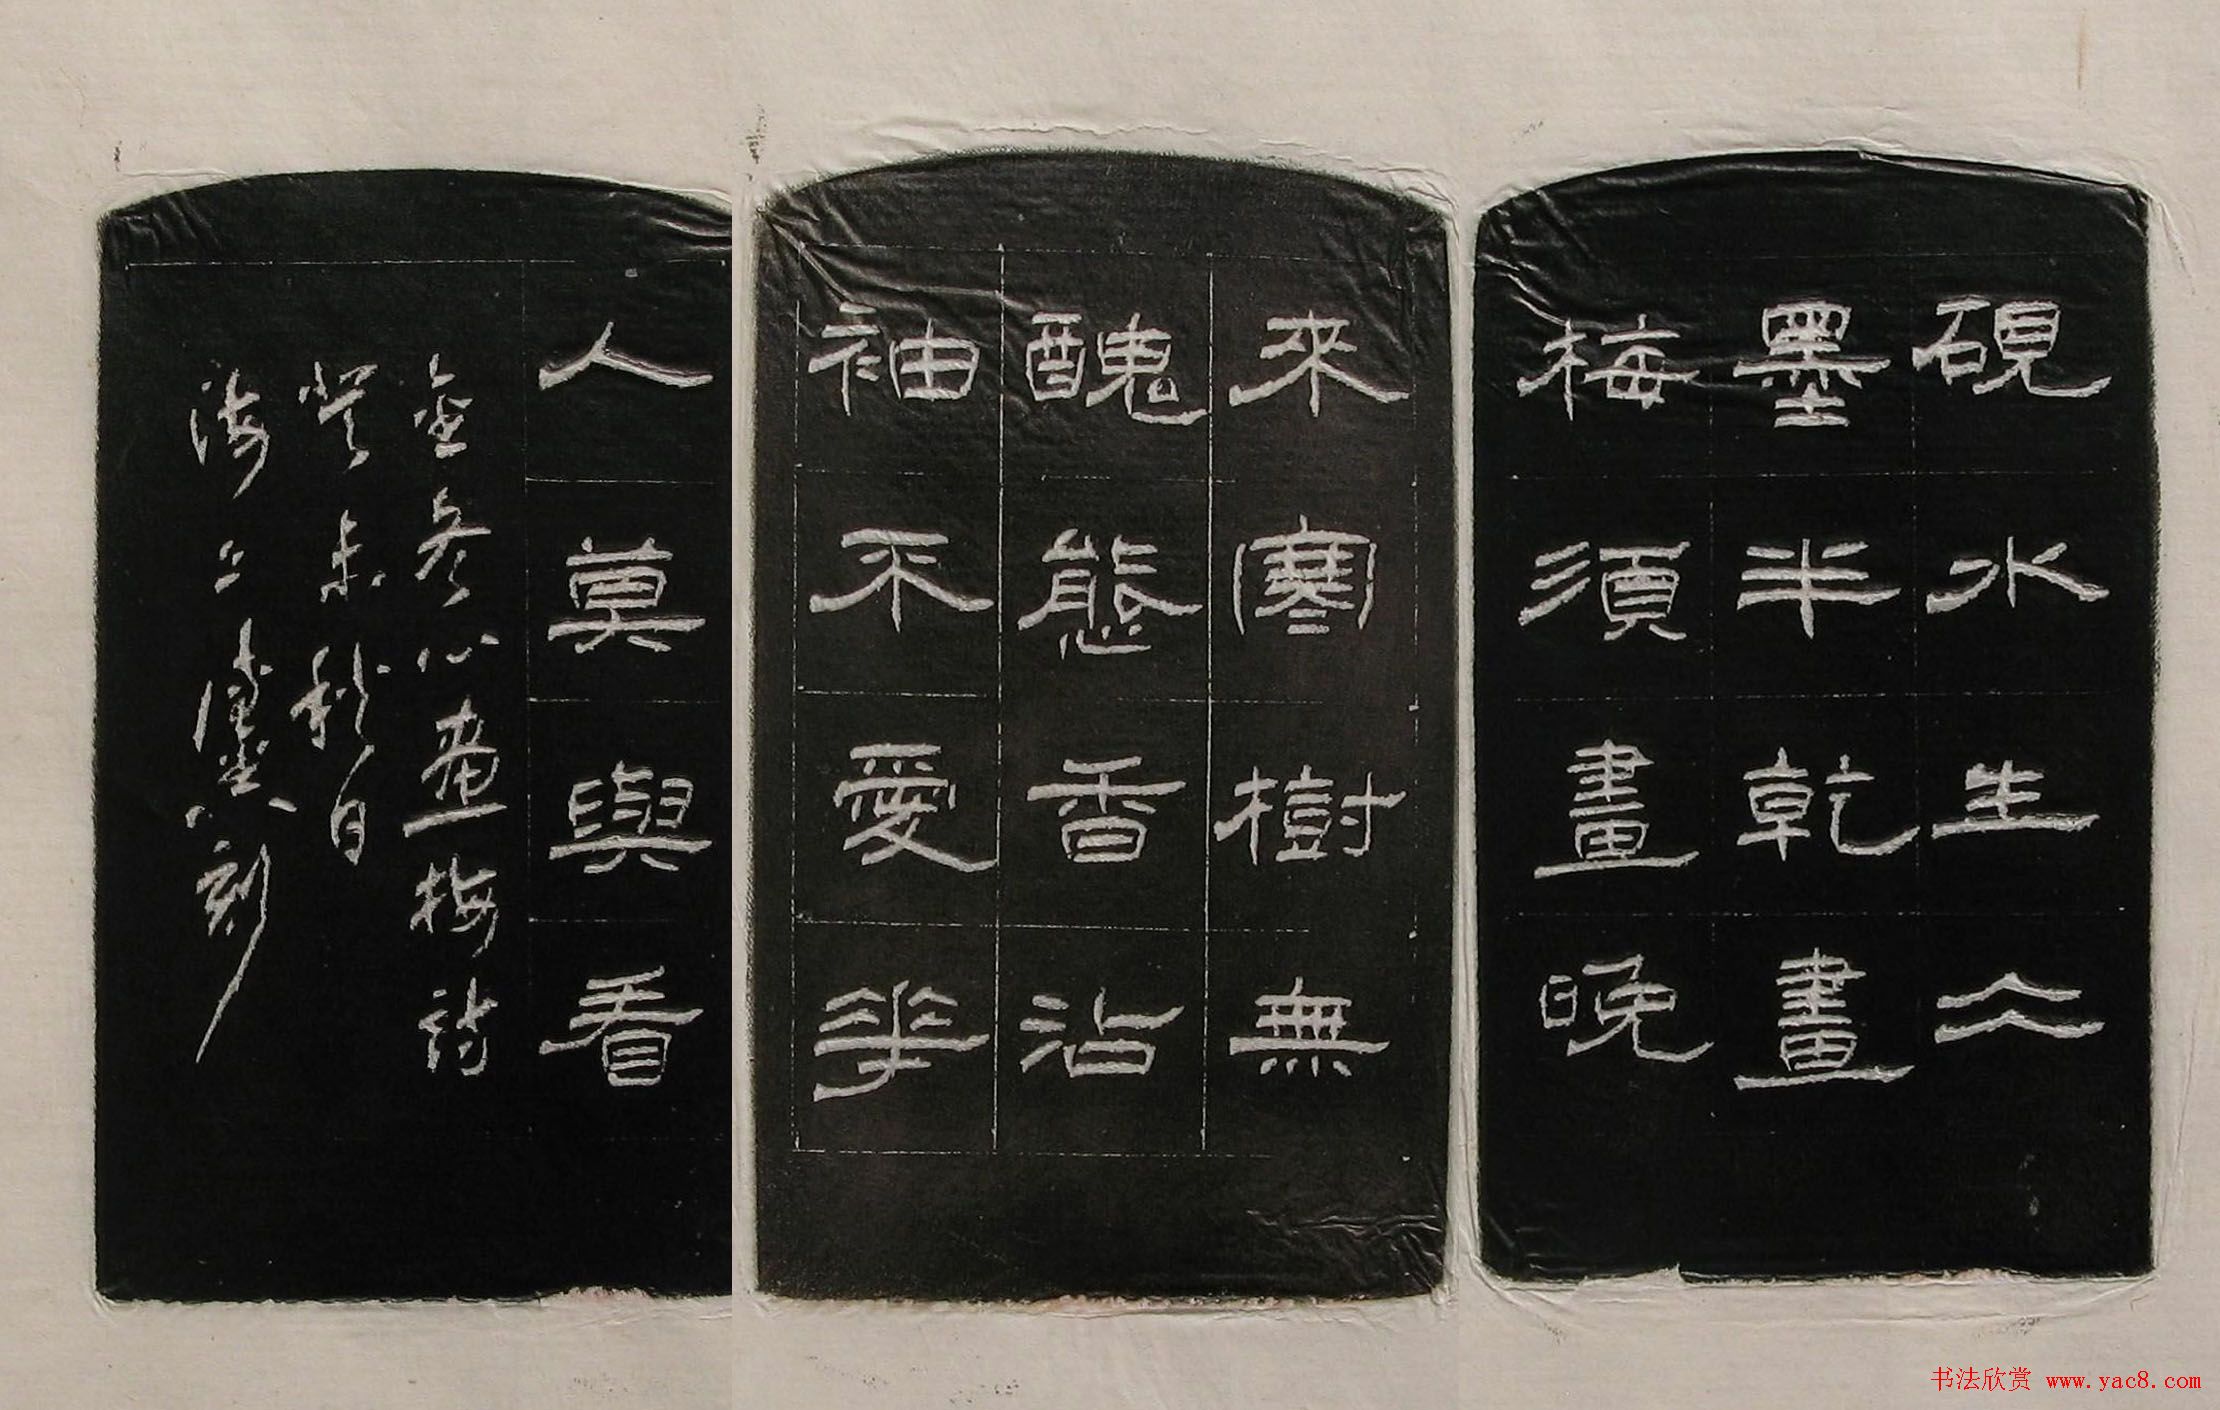 硯水生仌
墨半乾畫
梅須畫晚
來寒樹無
醜態香沾
袖不愛華
人莫與看
金冬心畫梅詩
癸未秋日
海上刻
书法欣赏 www.yac8.com